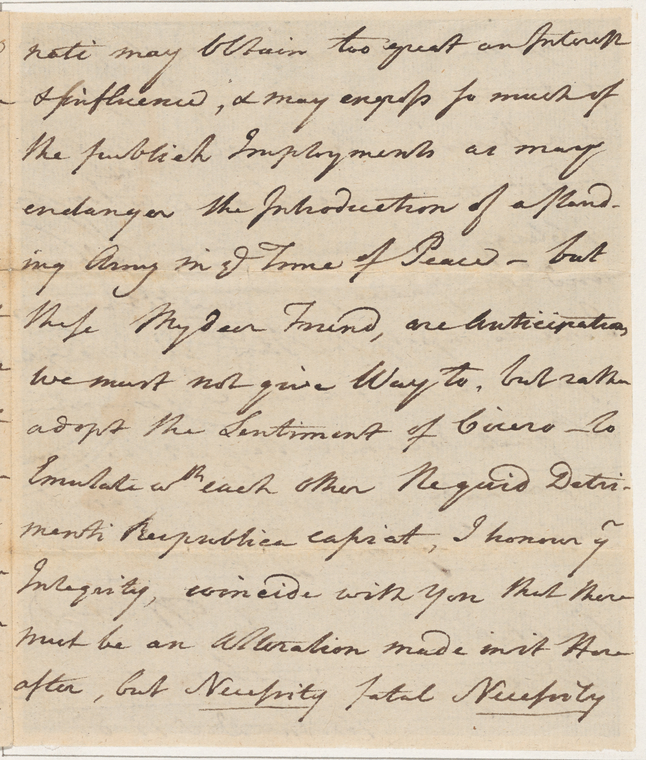 nati may Obtain too great an Interest
& Influence, & may engross so much of
the publick Imployments as may
endanger the Introduction of a stand-
ing Army in Time of Peace – but
these My dear Friend, are Anticipations
we must not give Way to, but rather
adopt the Sentiment of Cicero – to
Emulate wth each other Ne quid Detri-
menti Respublica capiat, I honour yr
Integrity, coincide with You that there
must be an Alteration made in it Here
after, but Necessity fatal Necessity